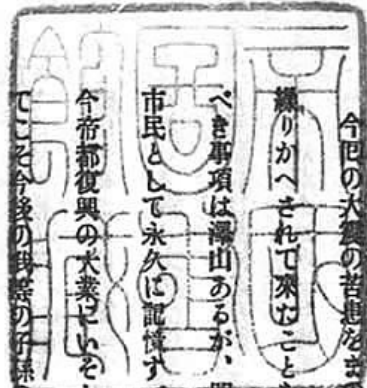 今囘の大震の苦患をま
繰りかへされて來たこと
べき事項は澤山あるが、
市民として永久に記憶す
今帝都復興の大業にいそ
てこそ今後の我等の子孫